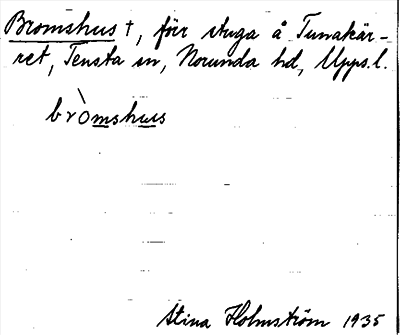 Bromshus †, förr stuga å Tunakär-
ret, Tensta sn, Norunda hd, Upps.l.
bròmshus
Stina Holmström 1935